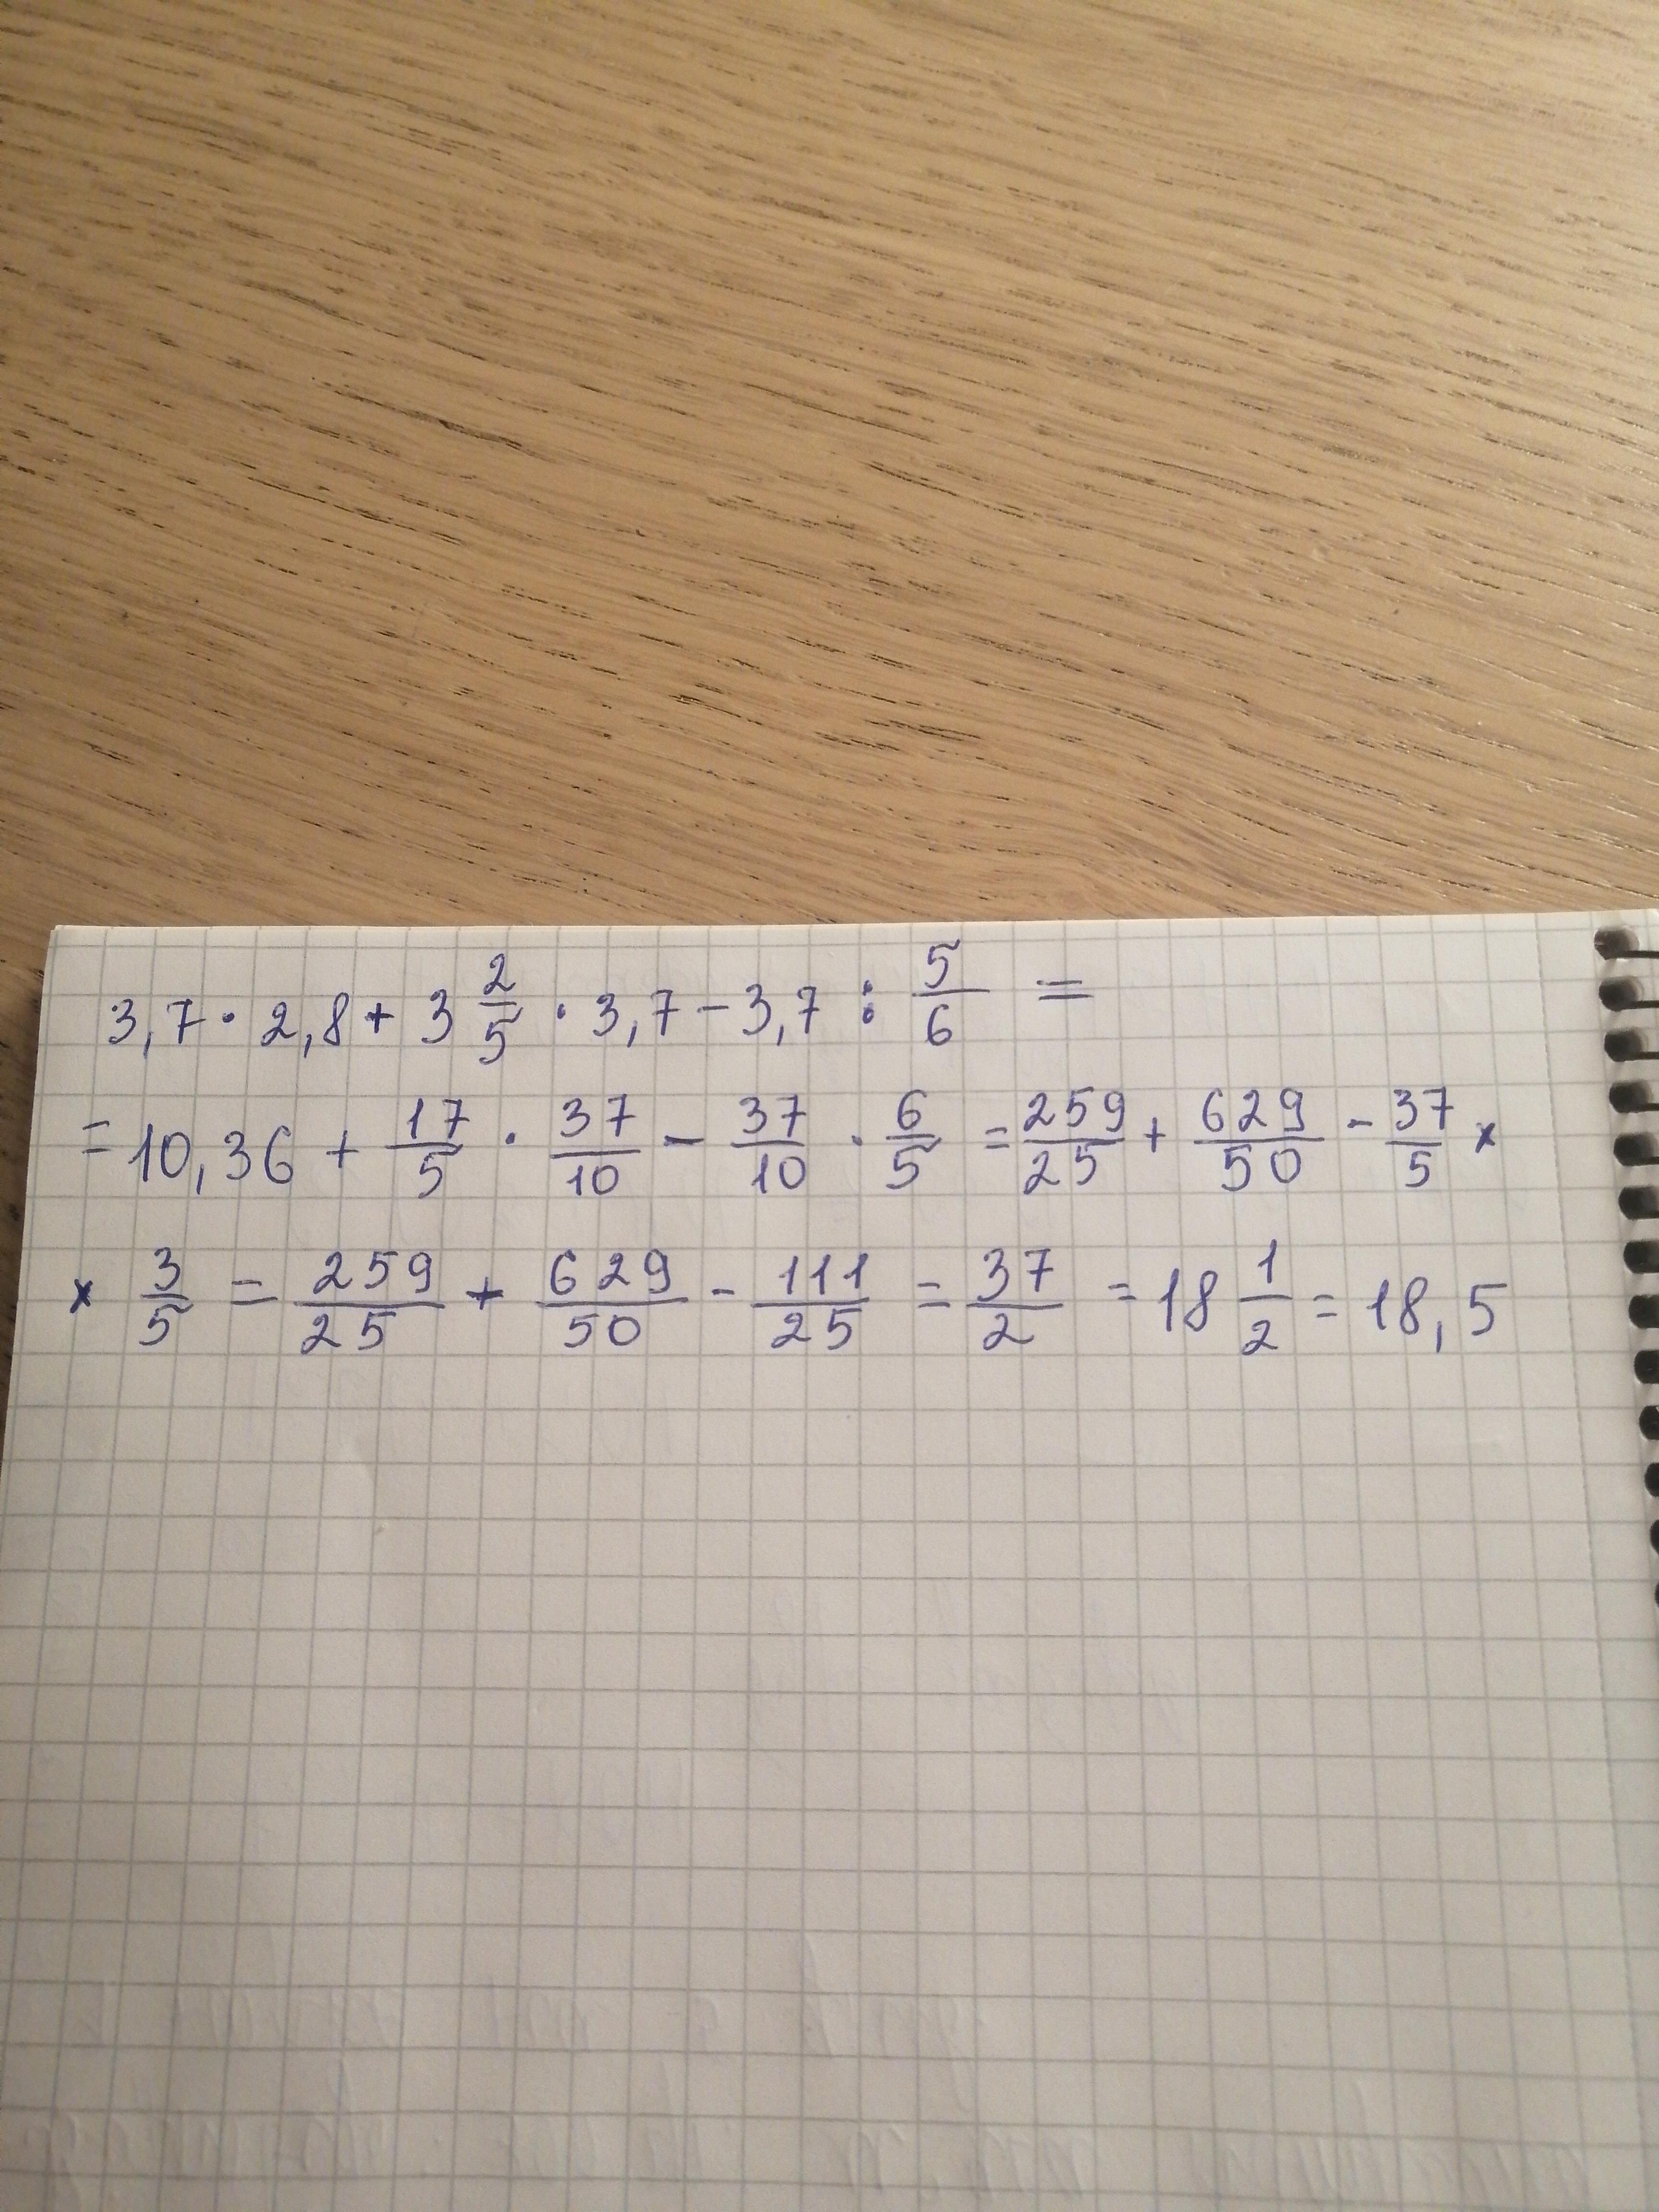 3,7 · 2,8 + 3 2/5 · 3,7 − 3,7 : 5/6 =
= 10,36 + 17/5 · 37/10 − 37/10 · 6/5 = 259/25 + 629/50 − 37/5 ×
× 3/5 = 259/25 + 629/50 − 111/25 = 37/2 = 18 1/2 = 18,5